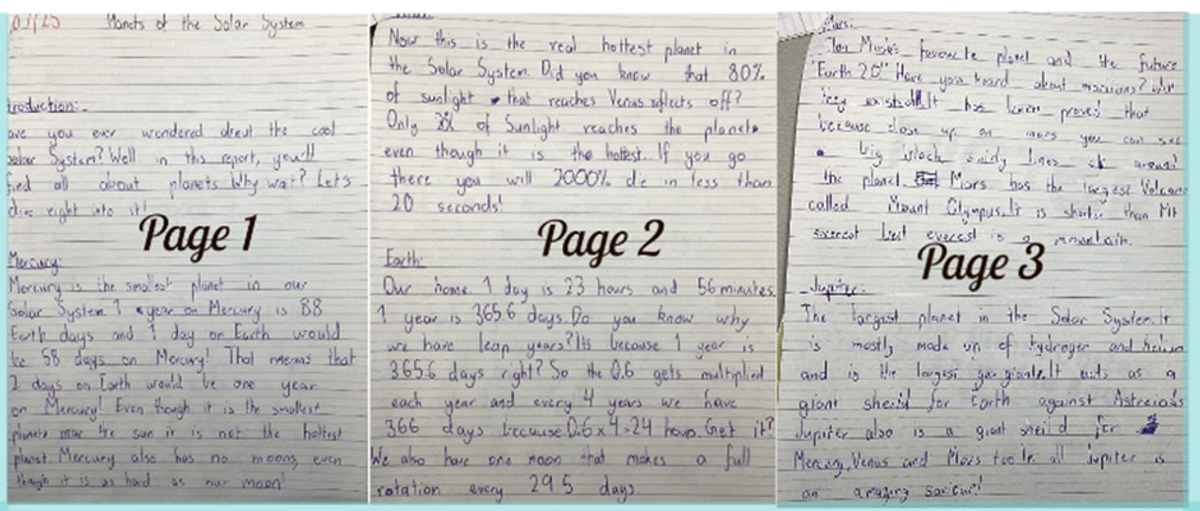 Planets of the Solar System
troduction:-
ave you ever wondered about the cool
Solar System? Well in this report, you'll
find all about planets Why wait? Let's
dive right into it!
Page 1
Mercury:
Mercury is the smallest planet in our
Solar System. 1 year on Mercury is 88
Earth days and 1 day on Earth would
be 58 days on Mercury! That means that
2 days on Earth would be one year
on Mercury! Even though it is the smallest
planet near the sun it is not the hottest
planet. Mercury also has no moons, even
though it is as hard as our moon!
Now this is the real hottest planet in
the Solar System. Did you know that 80%
of sunlight that reaches Venus reflects off?
Only of Sunlight reaches the planet
even though it is the hottest. If you go
there you will 2000% die in less than
20 seconds!
Page 2
Earth:
Our home. 1 day is 23 hours and 56 minutes.
1 year is 365.6 days. Do you know why
we have leap years? Its because 1 year is
365.6 days right? So the 0.6 gets multiplied
each year and every 4 years we have
366 days because 0.6x4=24 hours. Get it?
We also have one moon that makes a full
rotation every 29.5 days.
Mars:
Elon Musk's favourite planet and the future
"Earth 2.0" Have you heard about
they It has been proved that
because close up on mars you can see
big black lines around
the planet. Mars has the largest Volcano
called Mount Olympus. It is shorter than Mt
everest is a mountain.
Page 3
Jupiter:
The largest planet in the Solar System. It
is mostly made up of hydrogen and helium
and is the largest gas giant. It acts as a
giant sheild for Earth against Astreiods
Jupiter also is a giant sheild for
Mercury, Venus and Mars too. In all Jupiter is
an amazing saviour!